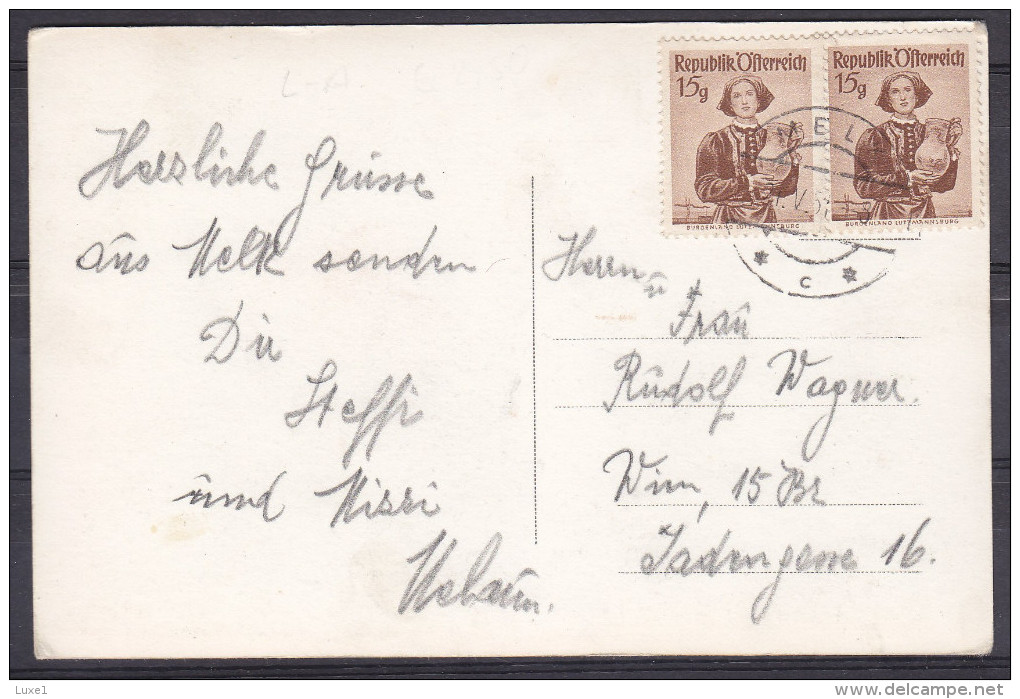 L-A.
Herzliche Grüsse
aus Melk senden
Dir
Steffi
und Mizzi
Republik Österreich
15g
BURGENLAND LUTZMANNSBURG
Republik Österreich
15g
BURGENLAND LUTZMANNSBURG
MELK
* c *
Herrn
u
Frau
Rudolf Wagner.
Wien, 15 Bz
16.
Luxe1
www.delcampe.net